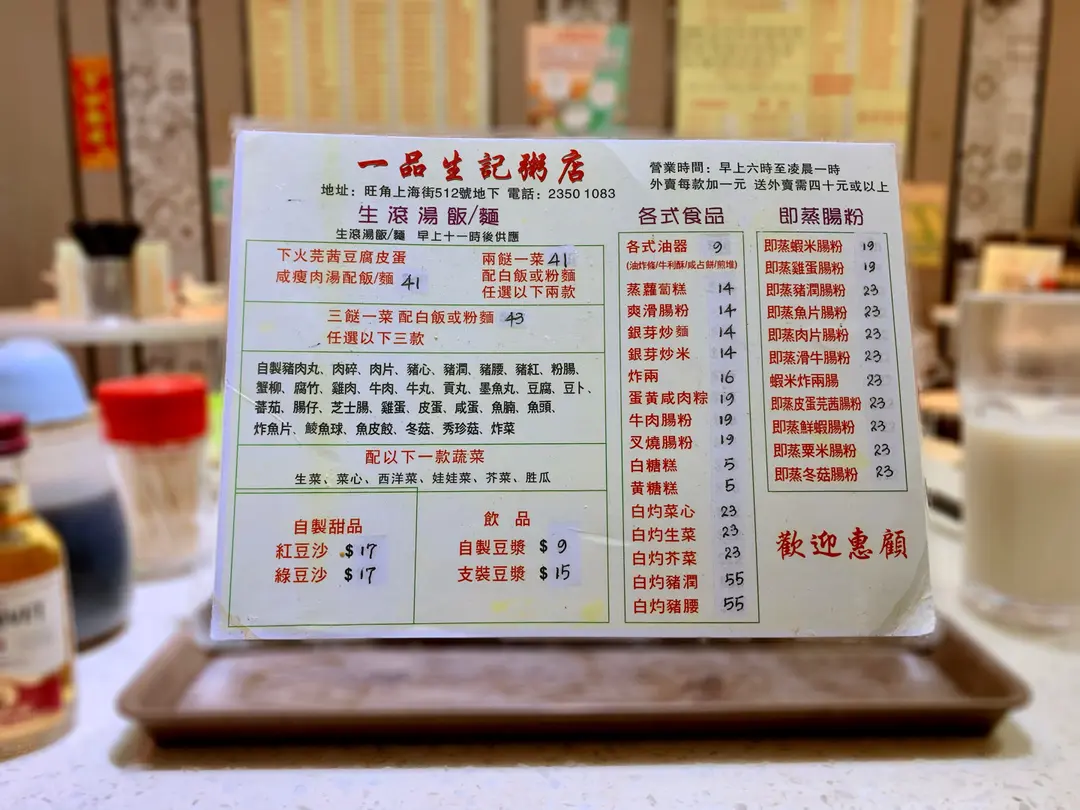 一品生記粥店
地址：旺角上海街512號地下 電話：2350 1083
營業時間：早上六時至凌晨一時
外賣每款加一元 送外賣需四十元或以上
生滾湯飯/麵
生滾湯飯/麵 早上十一時後供應
下火芫茜豆腐皮蛋
咸瘦肉湯配飯/麵 41
兩餸一菜 41
配白飯或粉麵
任選以下兩款
三餸一菜 配白飯或粉麵 43
任選以下三款
自製豬肉丸、肉碎、肉片、豬心、豬潤、豬腰、豬紅、粉腸、
蟹柳、腐竹、雞肉、牛肉、牛丸、貢丸、墨魚丸、豆腐、豆卜、
蕃茄、腸仔、芝士腸、雞蛋、皮蛋、咸蛋、魚腩、魚頭、
炸魚片、鯪魚球、魚皮餃、冬菇、秀珍菇、炸菜
配以下一款蔬菜
生菜、菜心、西洋菜、娃娃菜、芥菜、胜瓜
自製甜品
紅豆沙 $17
綠豆沙 $17
飲品
自製豆漿 $9
支裝豆漿 $15
各式食品
各式油器 9
(油炸條/牛利酥/咸占餅/煎堆)
蒸蘿蔔糕 14
爽滑腸粉 14
銀芽炒麵 14
銀芽炒米 14
炸兩 16
蛋黃咸肉粽 19
牛肉腸粉 19
叉燒腸粉 19
白糖糕 5
黃糖糕 5
白灼菜心 23
白灼生菜 23
白灼芥菜 23
白灼豬潤 55
白灼豬腰 55
即蒸腸粉
即蒸蝦米腸粉 19
即蒸雞蛋腸粉 19
即蒸豬潤腸粉 23
即蒸魚片腸粉 23
即蒸肉片腸粉 23
即蒸滑牛腸粉 23
蝦米炸兩腸 23
即蒸皮蛋芫茜腸粉 23
即蒸鮮蝦腸粉 23
即蒸粟米腸粉 23
即蒸冬菇腸粉 23
歡迎惠顧